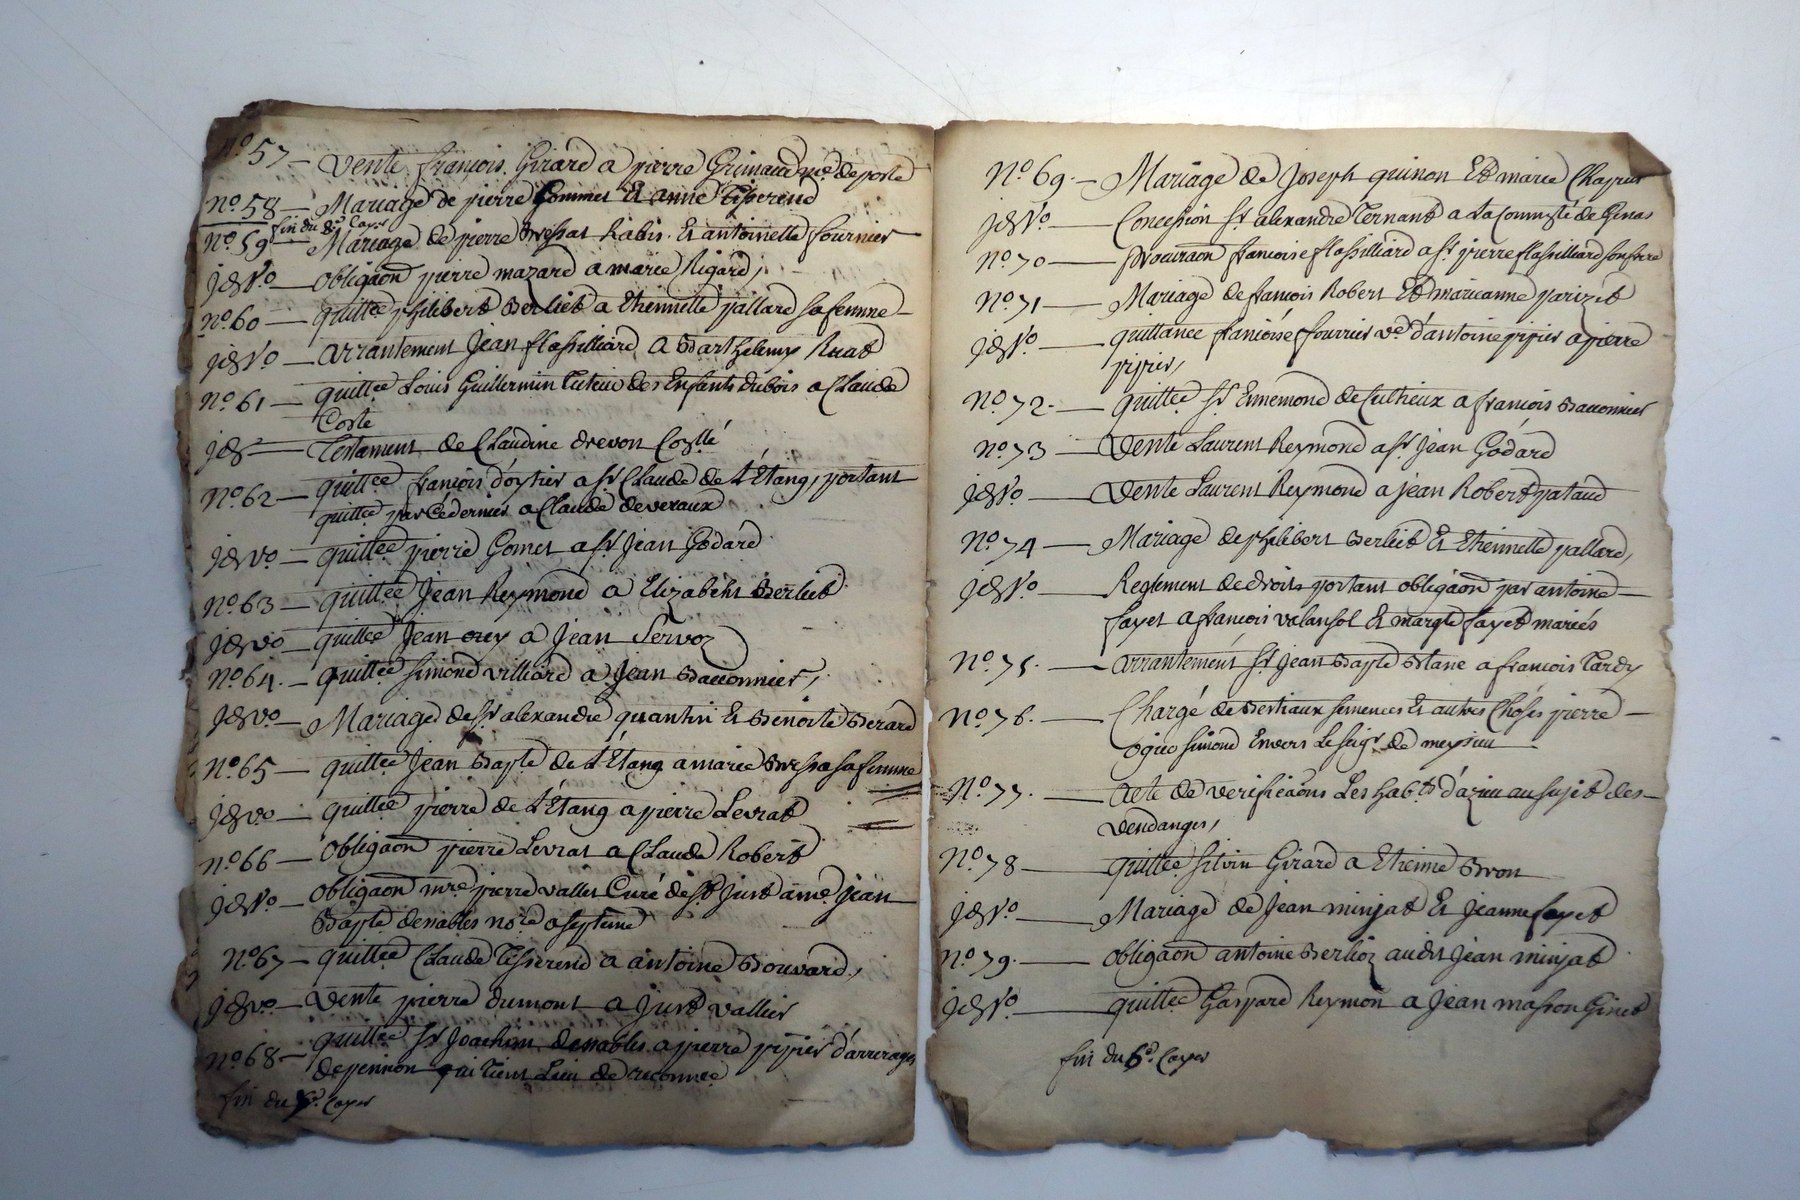 N.º 57 — Vente françois Girard a pierre Grimaud m.e de poste
N.º 58 — Mariage de pierre Gommet Et anne Tisserend
fin du Cayer
N.º 59 — Mariage de pierre habit. Et antoinette fournier
id V.º — obligaôn pierre mazard a marie Rigard,
N.º 60 — quittce philibert Berliet a Etiennette pallard sa femme
id V.º — arrantement Jean flassilliard a Barthelemy Ruat
N.º 61 — quittce Louis Guillermin Tuteur des Enfants dubois a Claude
Coste
id — Testament de Claudine drevon
N.º 62 — quittce françois d'oytier a Sr Claude de L'Etang, portant
quittce par a Claude deveraux
id V.º — quittce pierre Gomet a Sr Jean Godard
N.º 63 — quittce Jean Reymond a Elizabeht Berliet
id V.º — quittce Jean orey a Jean Servoz
N.º 64. — quittce simond villiard a Jean Bauonnier,
id V.º — Mariage de Sr alexandre quantin Et Benoite Berard
N.º 65 — quittce Jean Bapte de L'Etang a marie sa femme
id V.º — quittce pierre de L'Etang a pierre Levrat
N.º 66 — obligaôn pierre Levrat a Claude Robert
id V.º — obligaôn mre pierre vallet Curé de St Just a me Jean
Bapte denables nore a septeme
N.º 67 — quittce Claude Tisserend a antoine Bouvard,
id V.º — Vente pierre dumont a Just vallier
N.º 68 — quittce Sr Joachim denables a pierre pipier d'arrerages
de pension qui Tient Lieu de reconnce
fin du Cayer
N.º 69. — Mariage de Joseph quinon Et marie Chapuis
id V.º — Concession Sr alexandre Ternant a La Commté de Genas
N.º 70 — procuraôn françoise flassilliard a Sr pierre flassilliard son frere
N.º 71 — Mariage de françois Robert Et marieanne parizet
id V.º — quittance françoise fourrier ve d'antoine pipier a pierre
pipier,
N.º 72. — quittce Sr Ennemond de Cutheux a françois Bauonnier
N.º 73 — Vente Laurent Reymond a Sr Jean Godard
id V.º — Vente Laurent Reymond a Jean Robert pataud
N.º 74 — Mariage de philibert Berliet Et Etiennette pallard,
id V.º — Reglement de droits portant obligaôn par antoine
fayet a françois valansol Et margte fayet mariés
N.º 75. — arrantement Sr Jean Bapte Blane a françois Tardy
N.º 76. — Chargé de Bestiaux semences Et autres Choses pierre
ogier simond Envers Le seigr de meysieu
N.º 77. — acte de verificaôns Les habts d'azieu au sujet des
vendanges,
N.º 78 — quittce silvin Girard a Etienne Bron
id V.º — Mariage de Jean minjat Et Jeanne fayet
N.º 79. — obligaôn antoine Berlioz audit Jean minjat
id V.º — quittce Gaspard Reymon a Jean masson Ginet
fin du 6.e Cayer